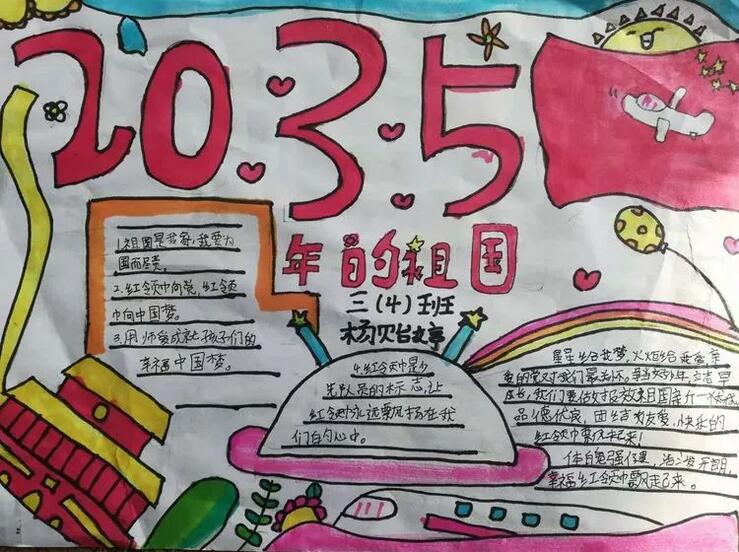 2035
年的祖国
三(4)班
杨贻
1.祖国是我家,我要为
国而尽责。
2.红领巾向党,红领
巾向中国梦。
3.用师爱成就孩子们的
幸福中国梦。
4.红领巾是少
先队员的标志,让
红领巾永远飘扬在我
们的心中。
星星给我梦,火炬给我
的党对我们最关怀。争当好少年,立志早
成长,我们要做好报效祖国
品德优良,团结友爱,快乐的
红领巾飘起来!
体魄强健,活泼开朗,
幸福红领巾飘起来。